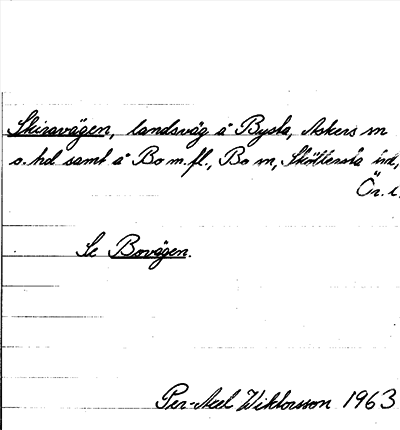 Skiravägen, landsväg å Bysta, Askers sn
o. hd samt å Bo m. fl., Bo sn, Sköllersta hd,
Ör. l.
Se Bovägen.
Per-Axel Wiktorsson 1963